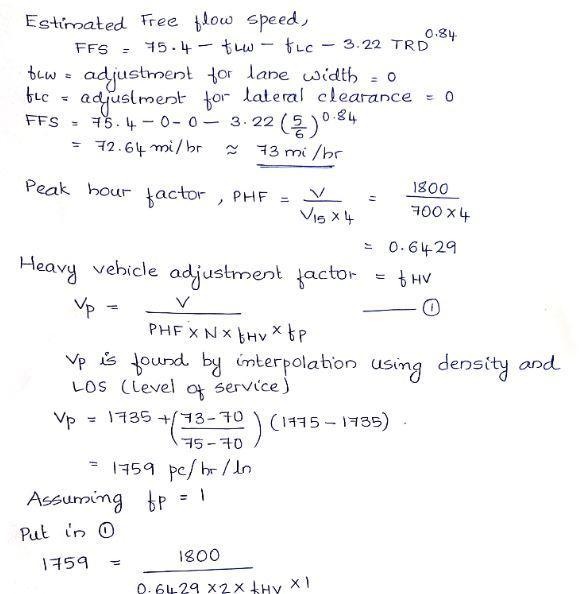 Estimated Free flow speed,
FFS = 75.4 - fLW - fLC - 3.22 TRD^0.84
fLW = adjustment for lane width = 0
fLC = adjustment for lateral clearance = 0
FFS = 75.4 - 0 - 0 - 3.22 (5/6)^0.84
= 72.64 mi/hr ≈ 73 mi/hr
Peak hour factor, PHF = V / (V15 × 4) = 1800 / (700 × 4)
= 0.6429
Heavy vehicle adjustment factor = fHV
Vp = V / (PHF × N × fHV × fP) —— ①
Vp is found by interpolation using density and
LOS (level of service)
Vp = 1735 + ((73-70) / (75-70)) (1775 - 1735).
= 1759 pc/hr/ln
Assuming fP = 1
Put in ①
1759 = 1800 / (0.6429 × 2 × fHV × 1)